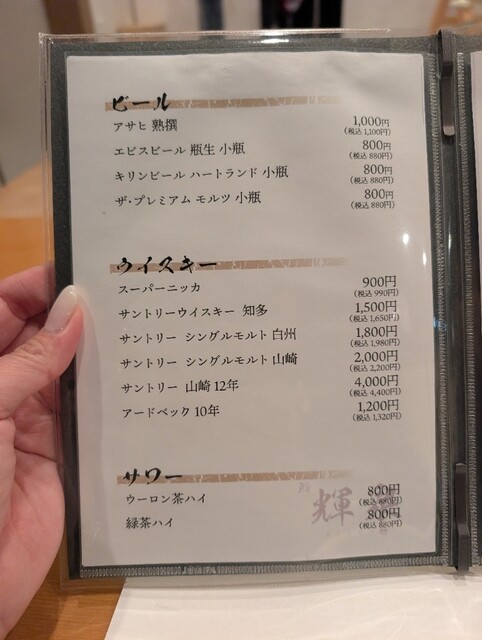 ビール
アサヒ 熟撰 1,000円
(税込 1,100円)
ヱビスビール 瓶生 小瓶 800円
(税込 880円)
キリンビール ハートランド 小瓶 800円
(税込 880円)
ザ・プレミアム モルツ 小瓶 800円
(税込 880円)
ウイスキー
スーパーニッカ 900円
(税込 990円)
サントリーウイスキー 知多 1,500円
(税込 1,650円)
サントリー シングルモルト 白州 1,800円
(税込 1,980円)
サントリー シングルモルト 山崎 2,000円
(税込 2,200円)
サントリー 山崎 12年 4,000円
(税込 4,400円)
アードベック 10年 1,200円
(税込 1,320円)
サワー
ウーロン茶ハイ 800円
(税込 880円)
緑茶ハイ 800円
(税込 880円)
輝